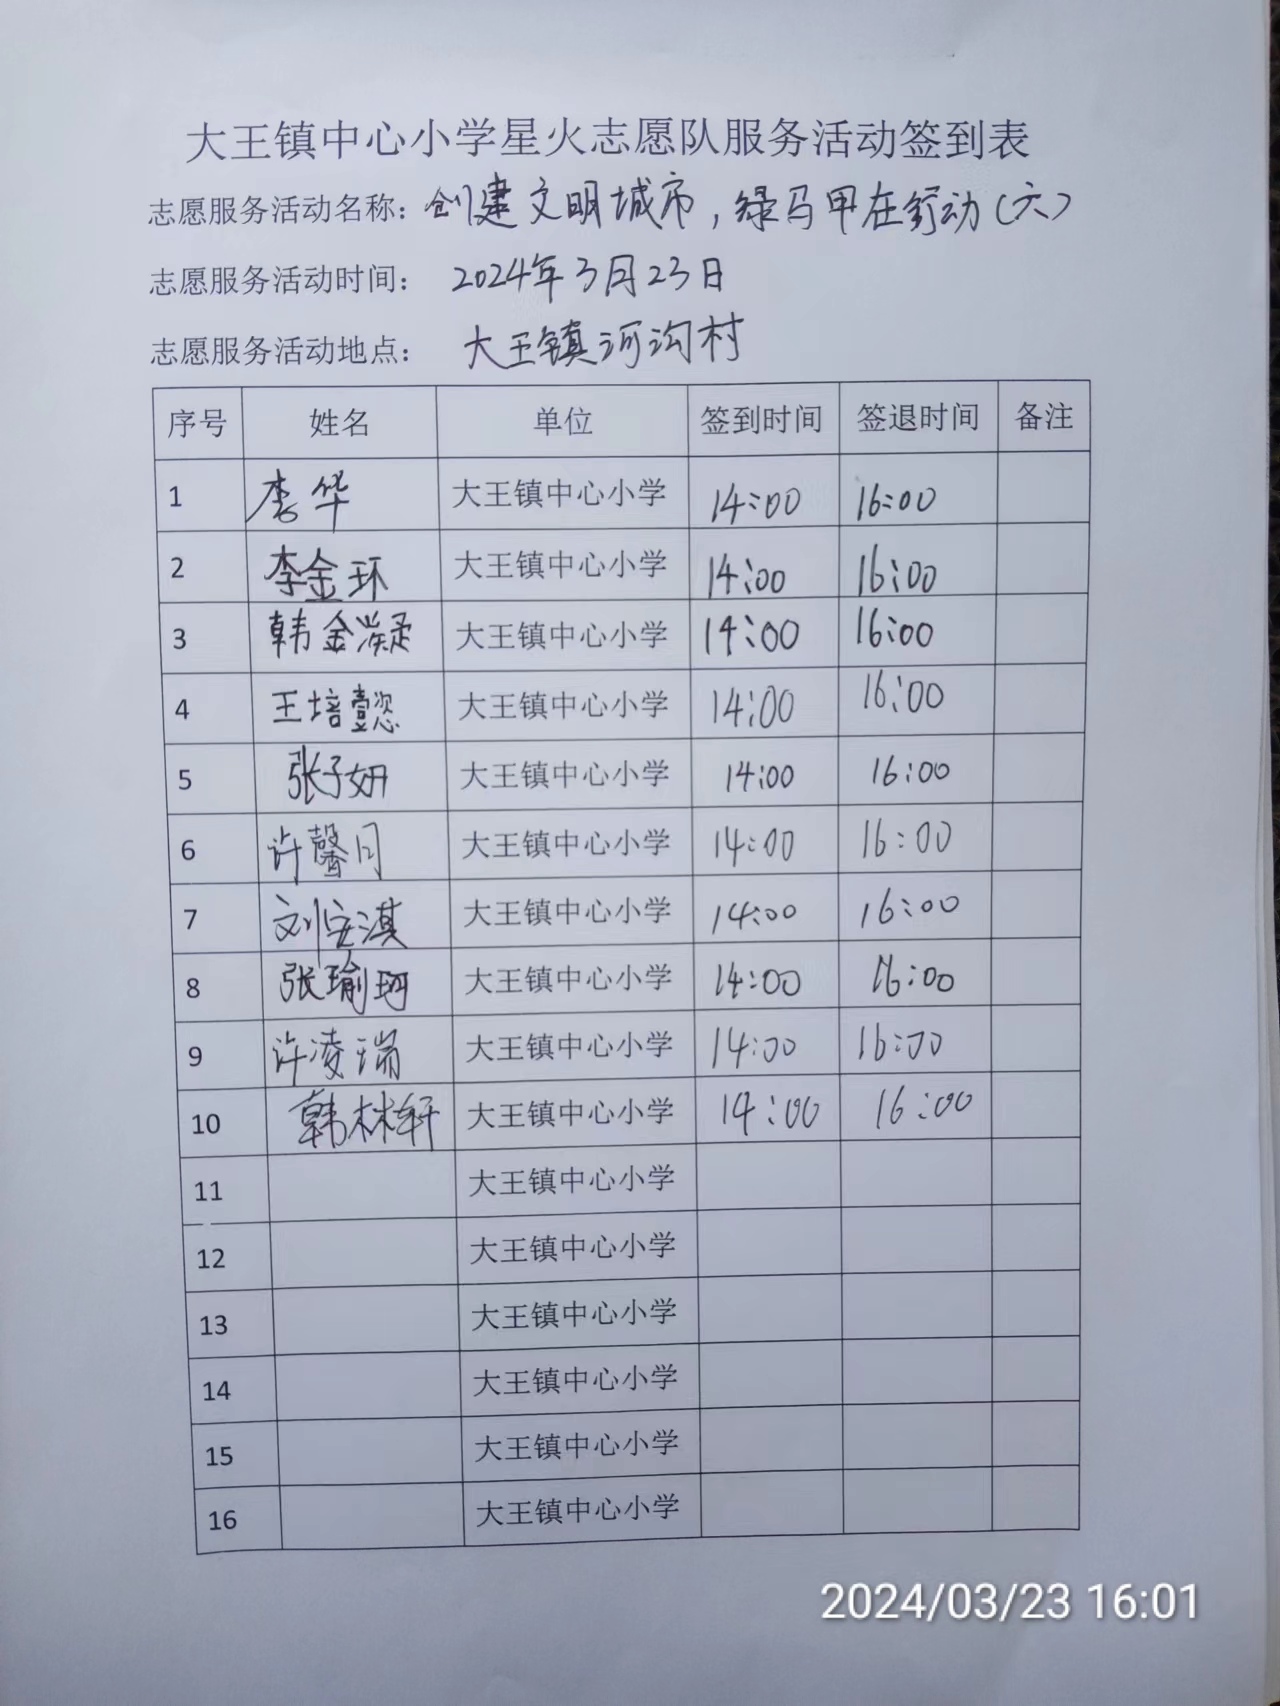 大王镇中心小学星火志愿队服务活动签到表
志愿服务活动名称：创建文明城市，绿马甲在行动（六）
志愿服务活动时间： 2024年3月23日
志愿服务活动地点： 大王镇河沟村
序号 姓名 单位 签到时间 签退时间 备注
1 李华 大王镇中心小学 14:00 16:00
2 李金环 大王镇中心小学 14:00 16:00
3 韩金凝 大王镇中心小学 14:00 16:00
4 王培懿 大王镇中心小学 14:00 16:00
5 张子妍 大王镇中心小学 14:00 16:00
6 许馨月 大王镇中心小学 14:00 16:00
7 刘安淇 大王镇中心小学 14:00 16:00
8 张瑜珂 大王镇中心小学 14:00 16:00
9 许凌瑞 大王镇中心小学 14:00 16:00
10 韩林轩 大王镇中心小学 14:00 16:00
11 大王镇中心小学
12 大王镇中心小学
13 大王镇中心小学
14 大王镇中心小学
15 大王镇中心小学
16 大王镇中心小学
2024/03/23 16:01